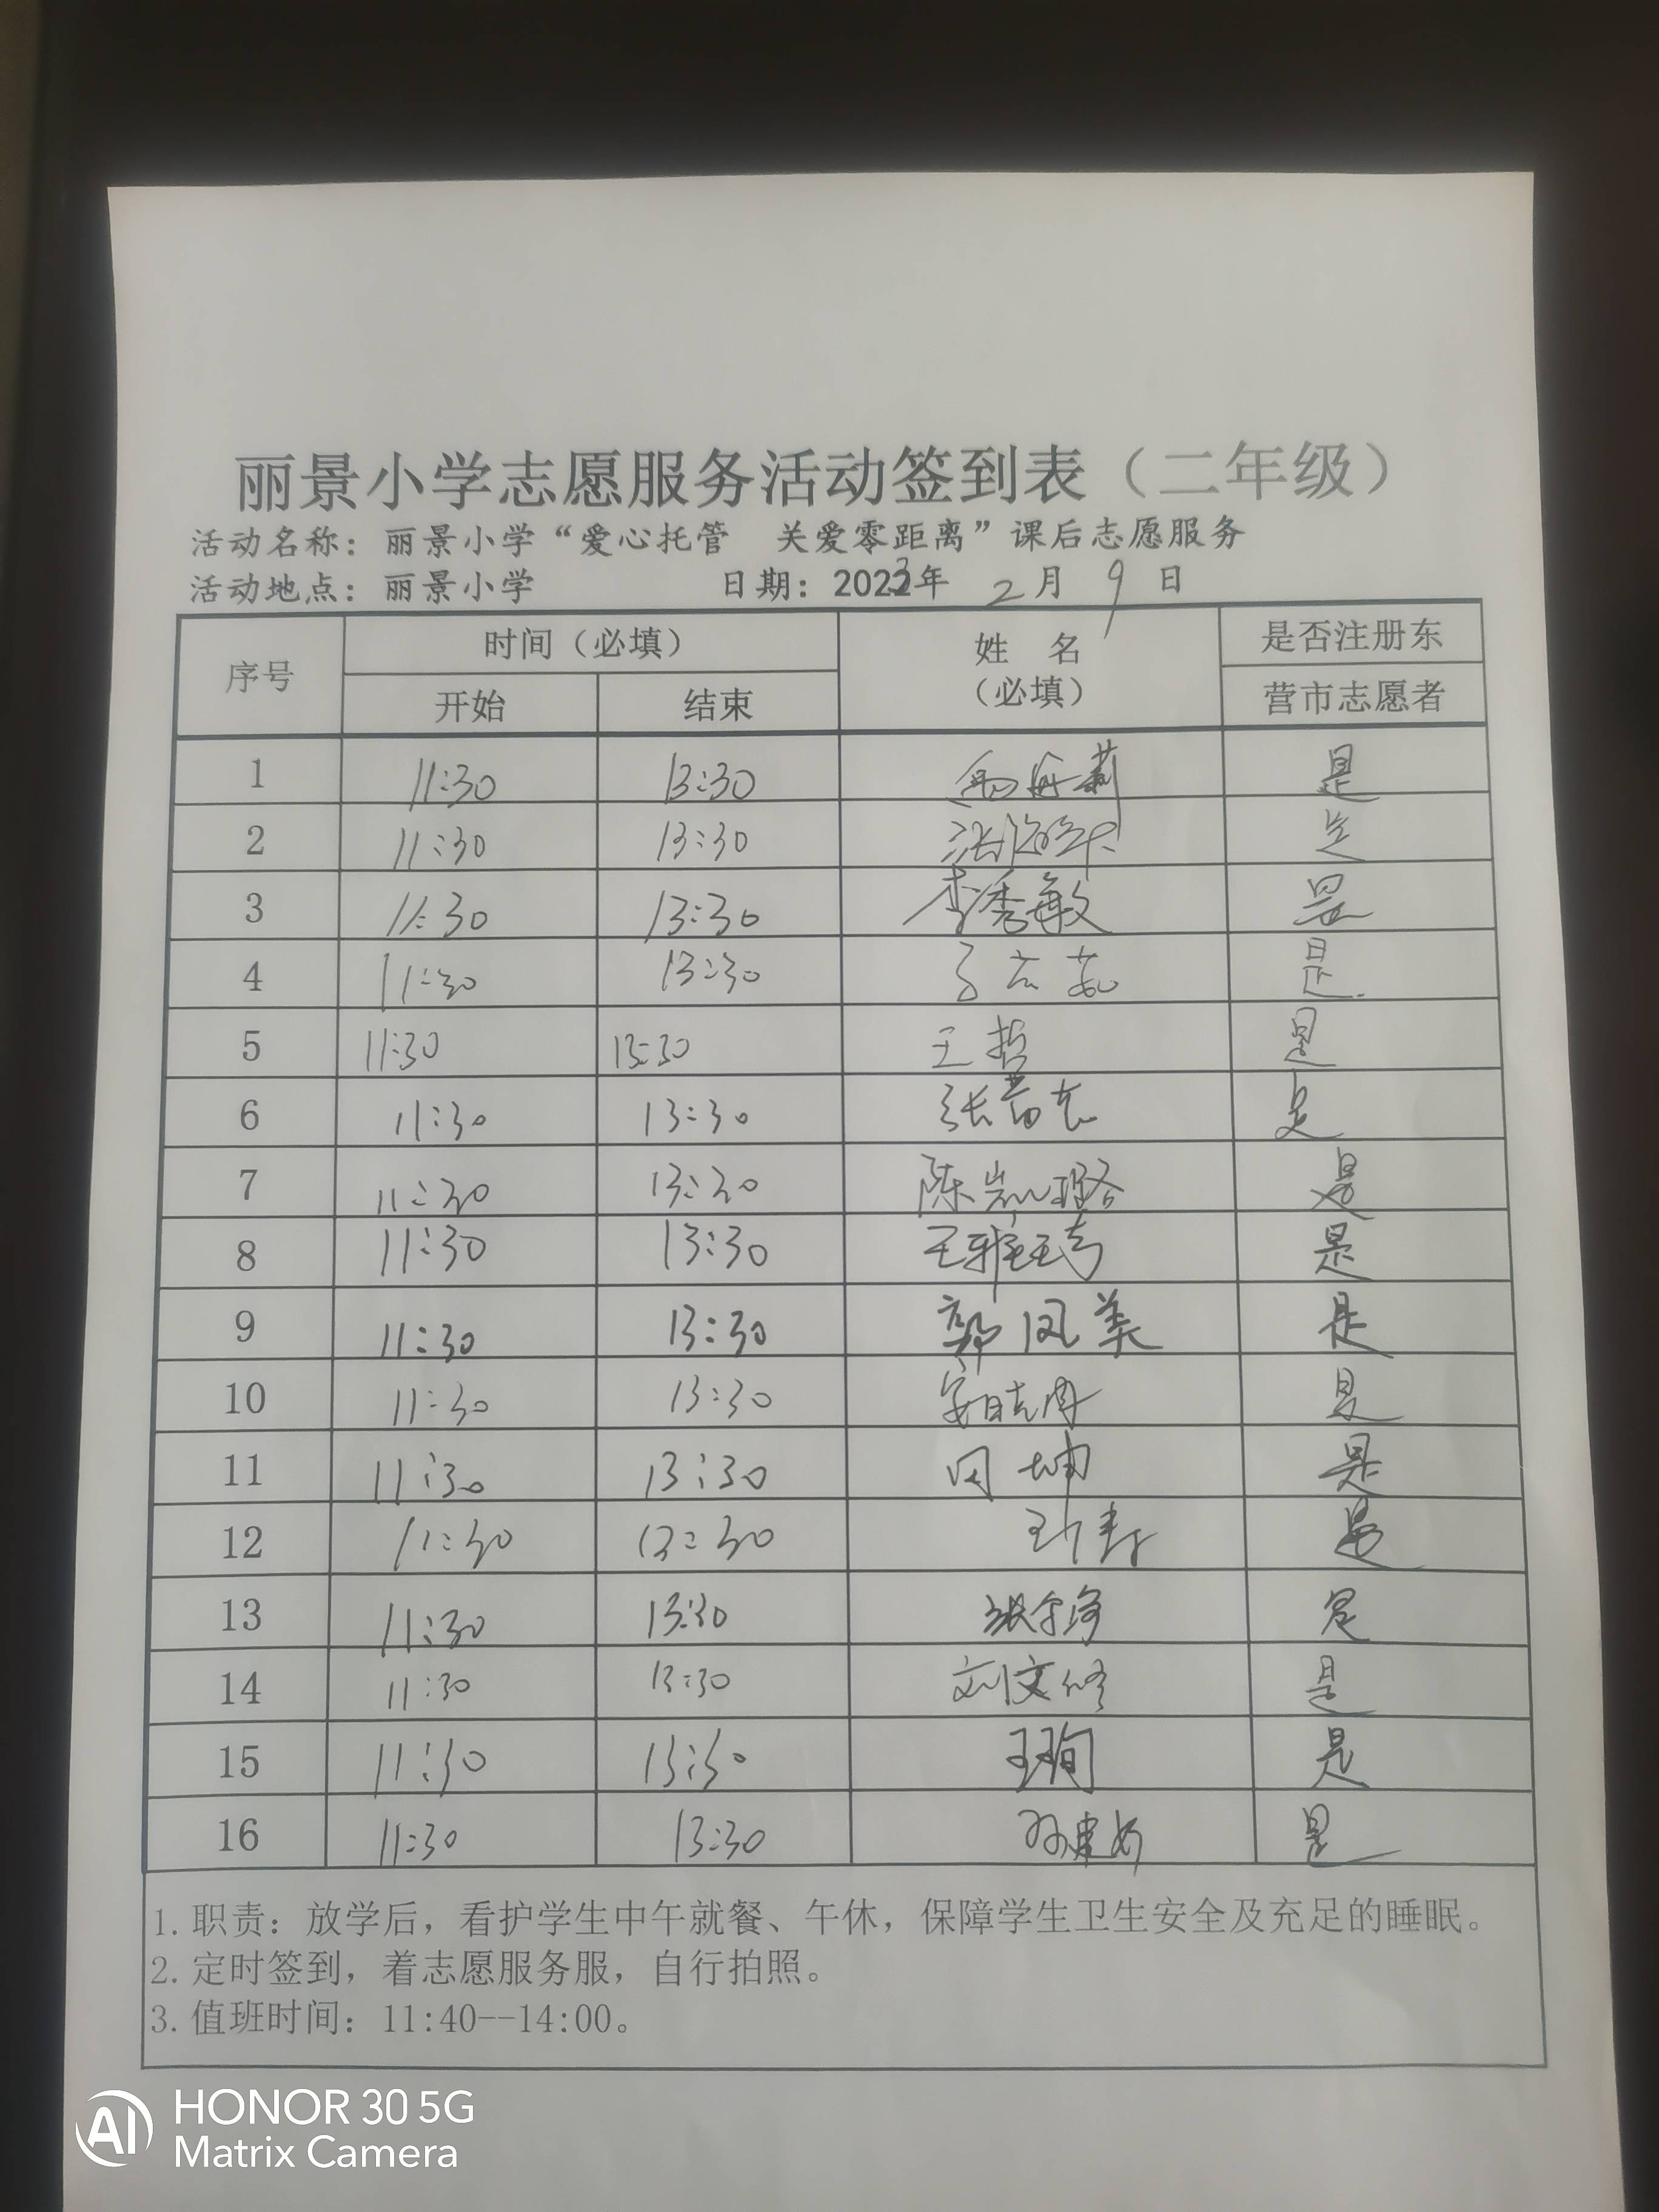 丽景小学志愿服务活动签到表（二年级）
活动名称：丽景小学“爱心托管 关爱零距离”课后志愿服务
活动地点：丽景小学 日期：2023年 2月 9日
序号 时间（必填） 姓 名 是否注册东
开始 结束 （必填） 营市志愿者
1 11:30 13:30 是
2 11:30 13:30 是
3 11:30 13:30 李秀敏 是
4 11:30 13:30 是
5 11:30 13:30 王哲 是
6 11:30 13:30 张 是
7 11:30 13:30 陈凯璐 是
8 11:30 13:30 王雅琦 是
9 11:30 13:30 郭凤美 是
10 11:30 13:30 是
11 11:30 13:30 田坤 是
12 11:30 13:30 是
13 11:30 13:30 张 是
14 11:30 13:30 刘文修 是
15 11:30 13:30 王珣 是
16 11:30 13:30 孙建 是
1. 职责：放学后，看护学生中午就餐、午休，保障学生卫生安全及充足的睡眠。
2. 定时签到，着志愿服务服，自行拍照。
3. 值班时间：11:40--14:00。
AI HONOR 30 5G
Matrix Camera